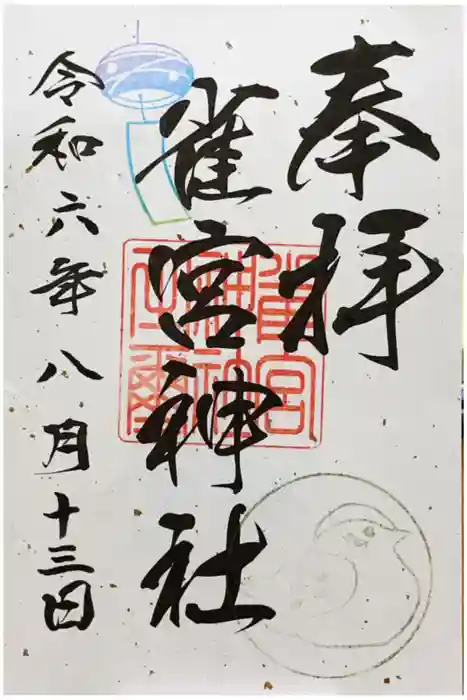 奉拝
雀宮神社
雀宮神社之璽
令和六年八月十三日